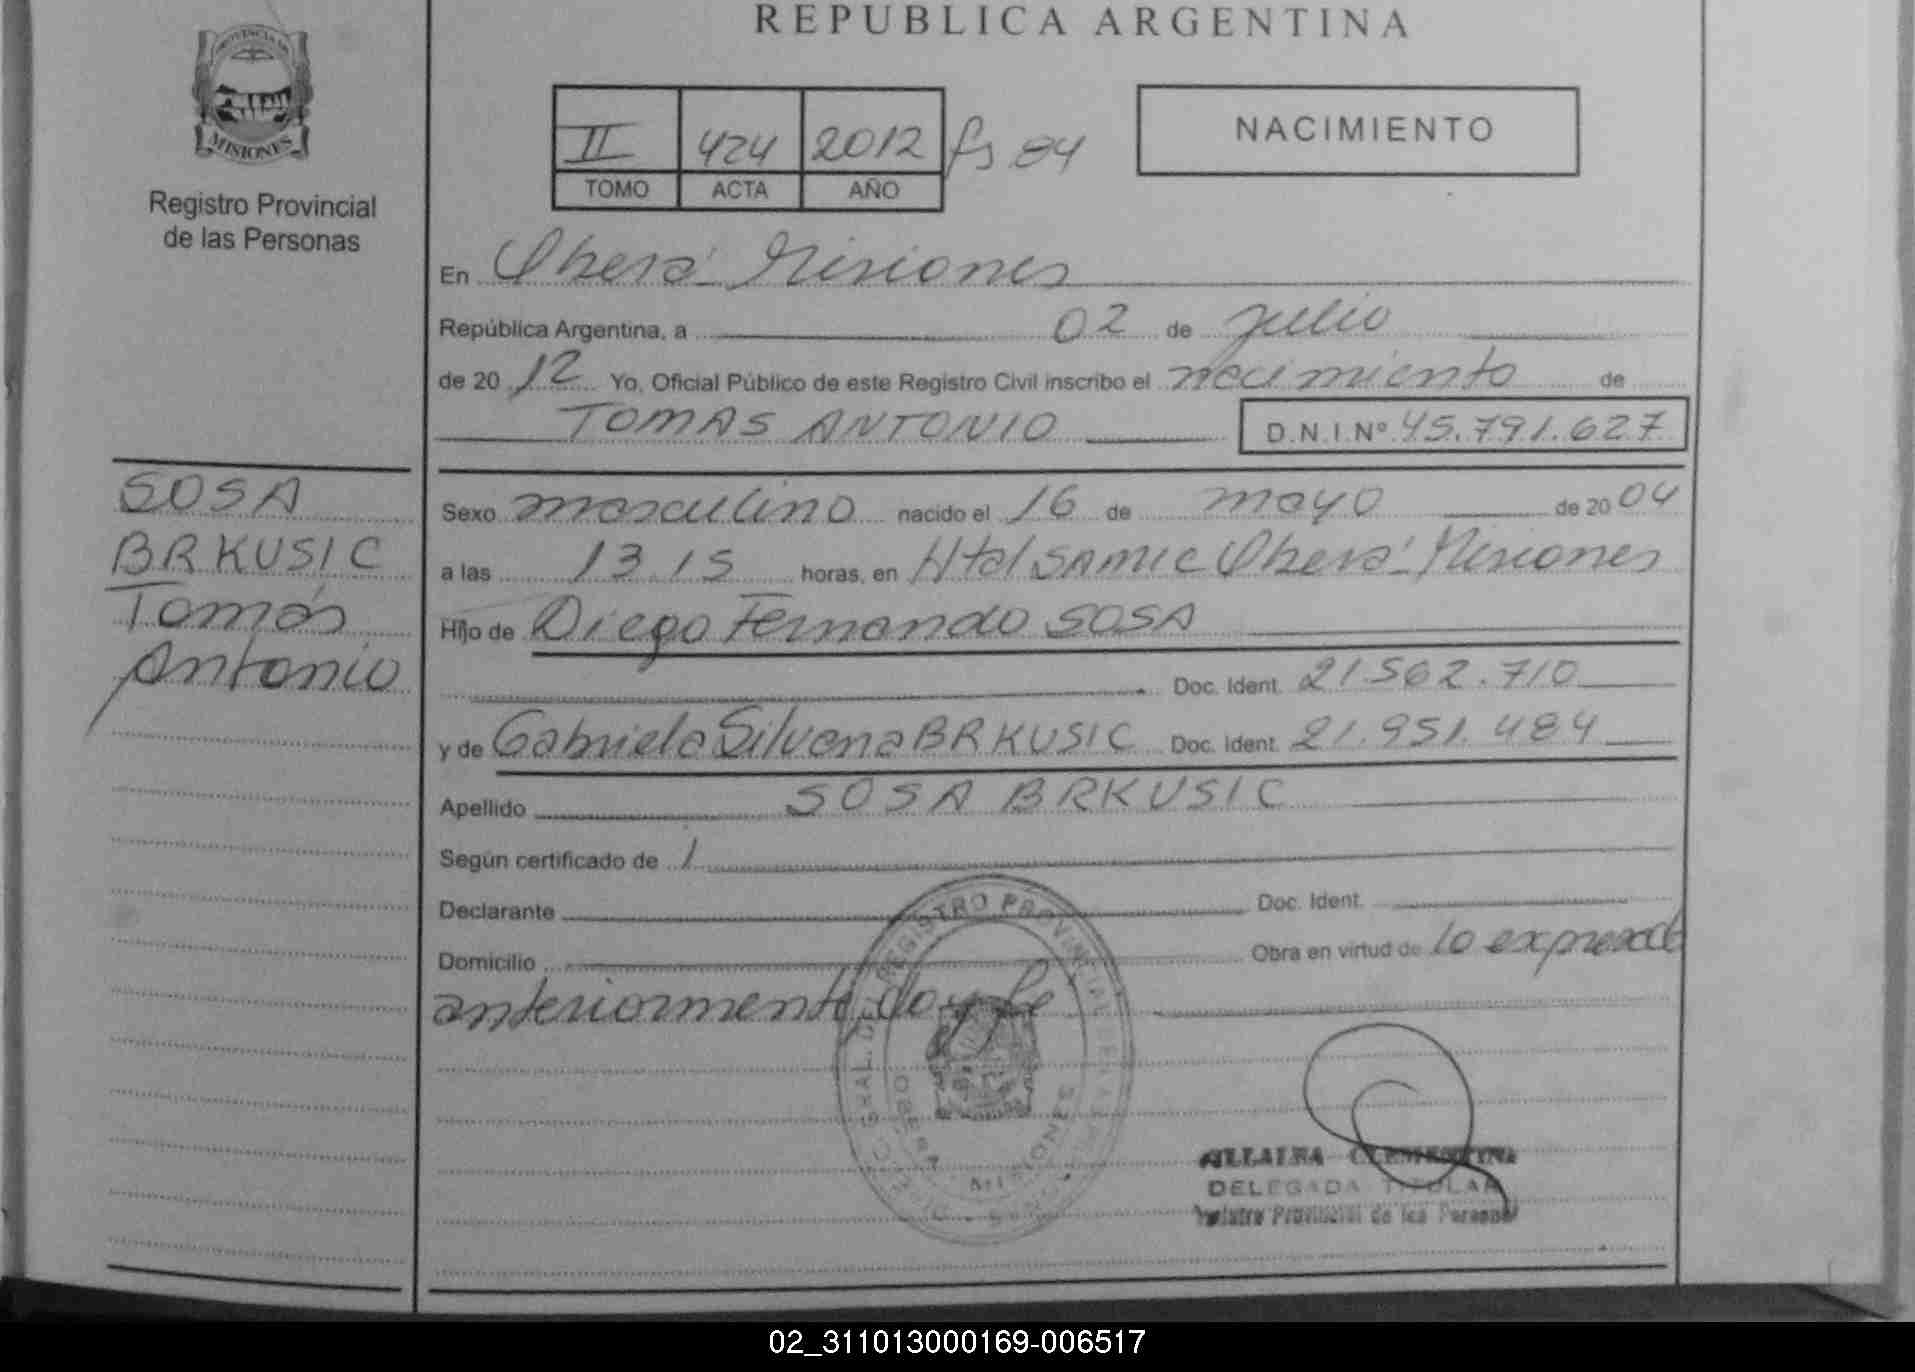 REPUBLICA ARGENTINA
PROVINCIA DE
MISIONES
Registro Provincial
de las Personas
II 424 2012 fs 84
TOMO ACTA AÑO
NACIMIENTO
En Oberá Misiones
República Argentina, a 02 de julio
de 2012 Yo, Oficial Público de este Registro Civil inscribo el nacimiento de
TOMAS ANTONIO D.N.I.Nº 45.791.627
SOSA
BRKUSIC
Tomás
Antonio
Sexo masculino nacido el 16 de mayo de 2004
a las 13.15 horas, en Htal SAMIC Oberá Misiones
Hijo de Diego Fernando SOSA
Doc. Ident. 21.562.710
y de Gabriela Silvana BRKUSIC Doc. Ident. 21.951.484
Apellido SOSA BRKUSIC
Según certificado de /
Declarante Doc. Ident.
Domicilio Obra en virtud de lo expresado
anteriormente, doy fe
REGISTRO PROVINCIAL DE LAS PERSONAS
OBERA MISIONES
CLEMENTINA
DELEGADA TITULAR
Registro Provincial de las Personas
02_311013000169-006517